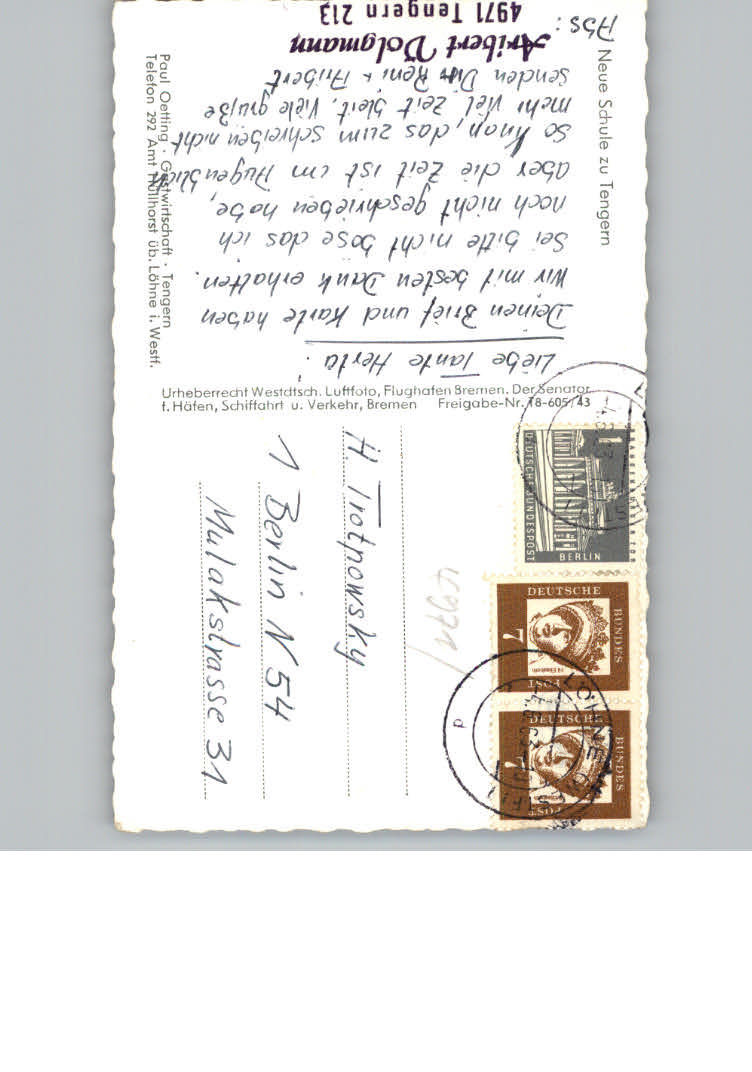 Neue Schule zu Tengern
Abs:
Aribert Dolgmann
4971 Tengern 213
Liebe Tante Herta!
Deinen Brief und Karte haben
wir mit besten Dank erhalten.
Sei bitte nicht böse das ich
noch nicht geschrieben habe,
aber die Zeit ist im Augenblick
so knap, das zum schreiben nicht
mehr viel Zeit bleit. Viele grüße
senden Dir Reni u Aribert
Paul Oetting · Gastwirtschaft · Tengern
Telefon 292 Amt Hüllhorst üb. Löhne i. Westf.
Urheberrecht Westdtsch. Luftfoto, Flughafen Bremen. Der Senator
f. Häfen, Schiffahrt u. Verkehr, Bremen Freigabe-Nr. T8-605/43
DEUTSCHE BUNDESPOST
BERLIN
1
DEUTSCHE
BUNDES
POST
7
DEUTSCHE
BUNDES
POST
7
LÖHNE
H. Trotpowsky
1 Berlin N 54
Mulakstrasse 31